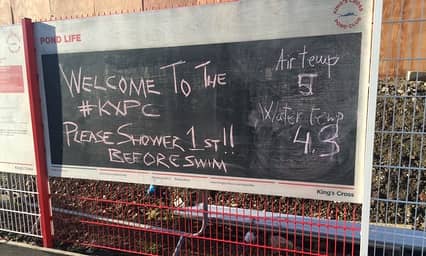 POND LIFE
WELCOME TO THE
#KXPC
PLEASE SHOWER 1ST!!
BEFORE SWIM
Air temp
5
Water temp
4.3
King's Cross